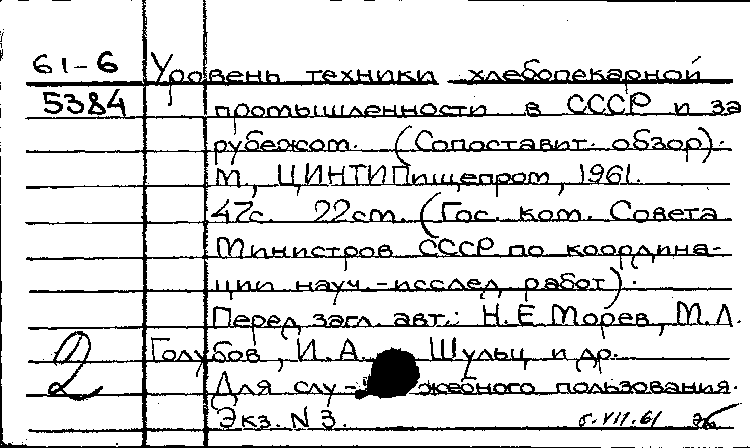 61-6 Уровень техники хлебопекарной
5384 промышленности в СССР и за
рубежом. (Сопоставит. обзор).
М., ЦИНТИПищепром, 1961.
47с. 22см. (Гос. ком. Совета
Министров СССР по координа-
ции науч.-исслед. работ).
Перед загл. авт.: Н.Е. Морев, М.Л.
Голубов, И.А. Шульц и др.
2 Для слу- жебного пользования.
Экз. N 3. 5.VII.61